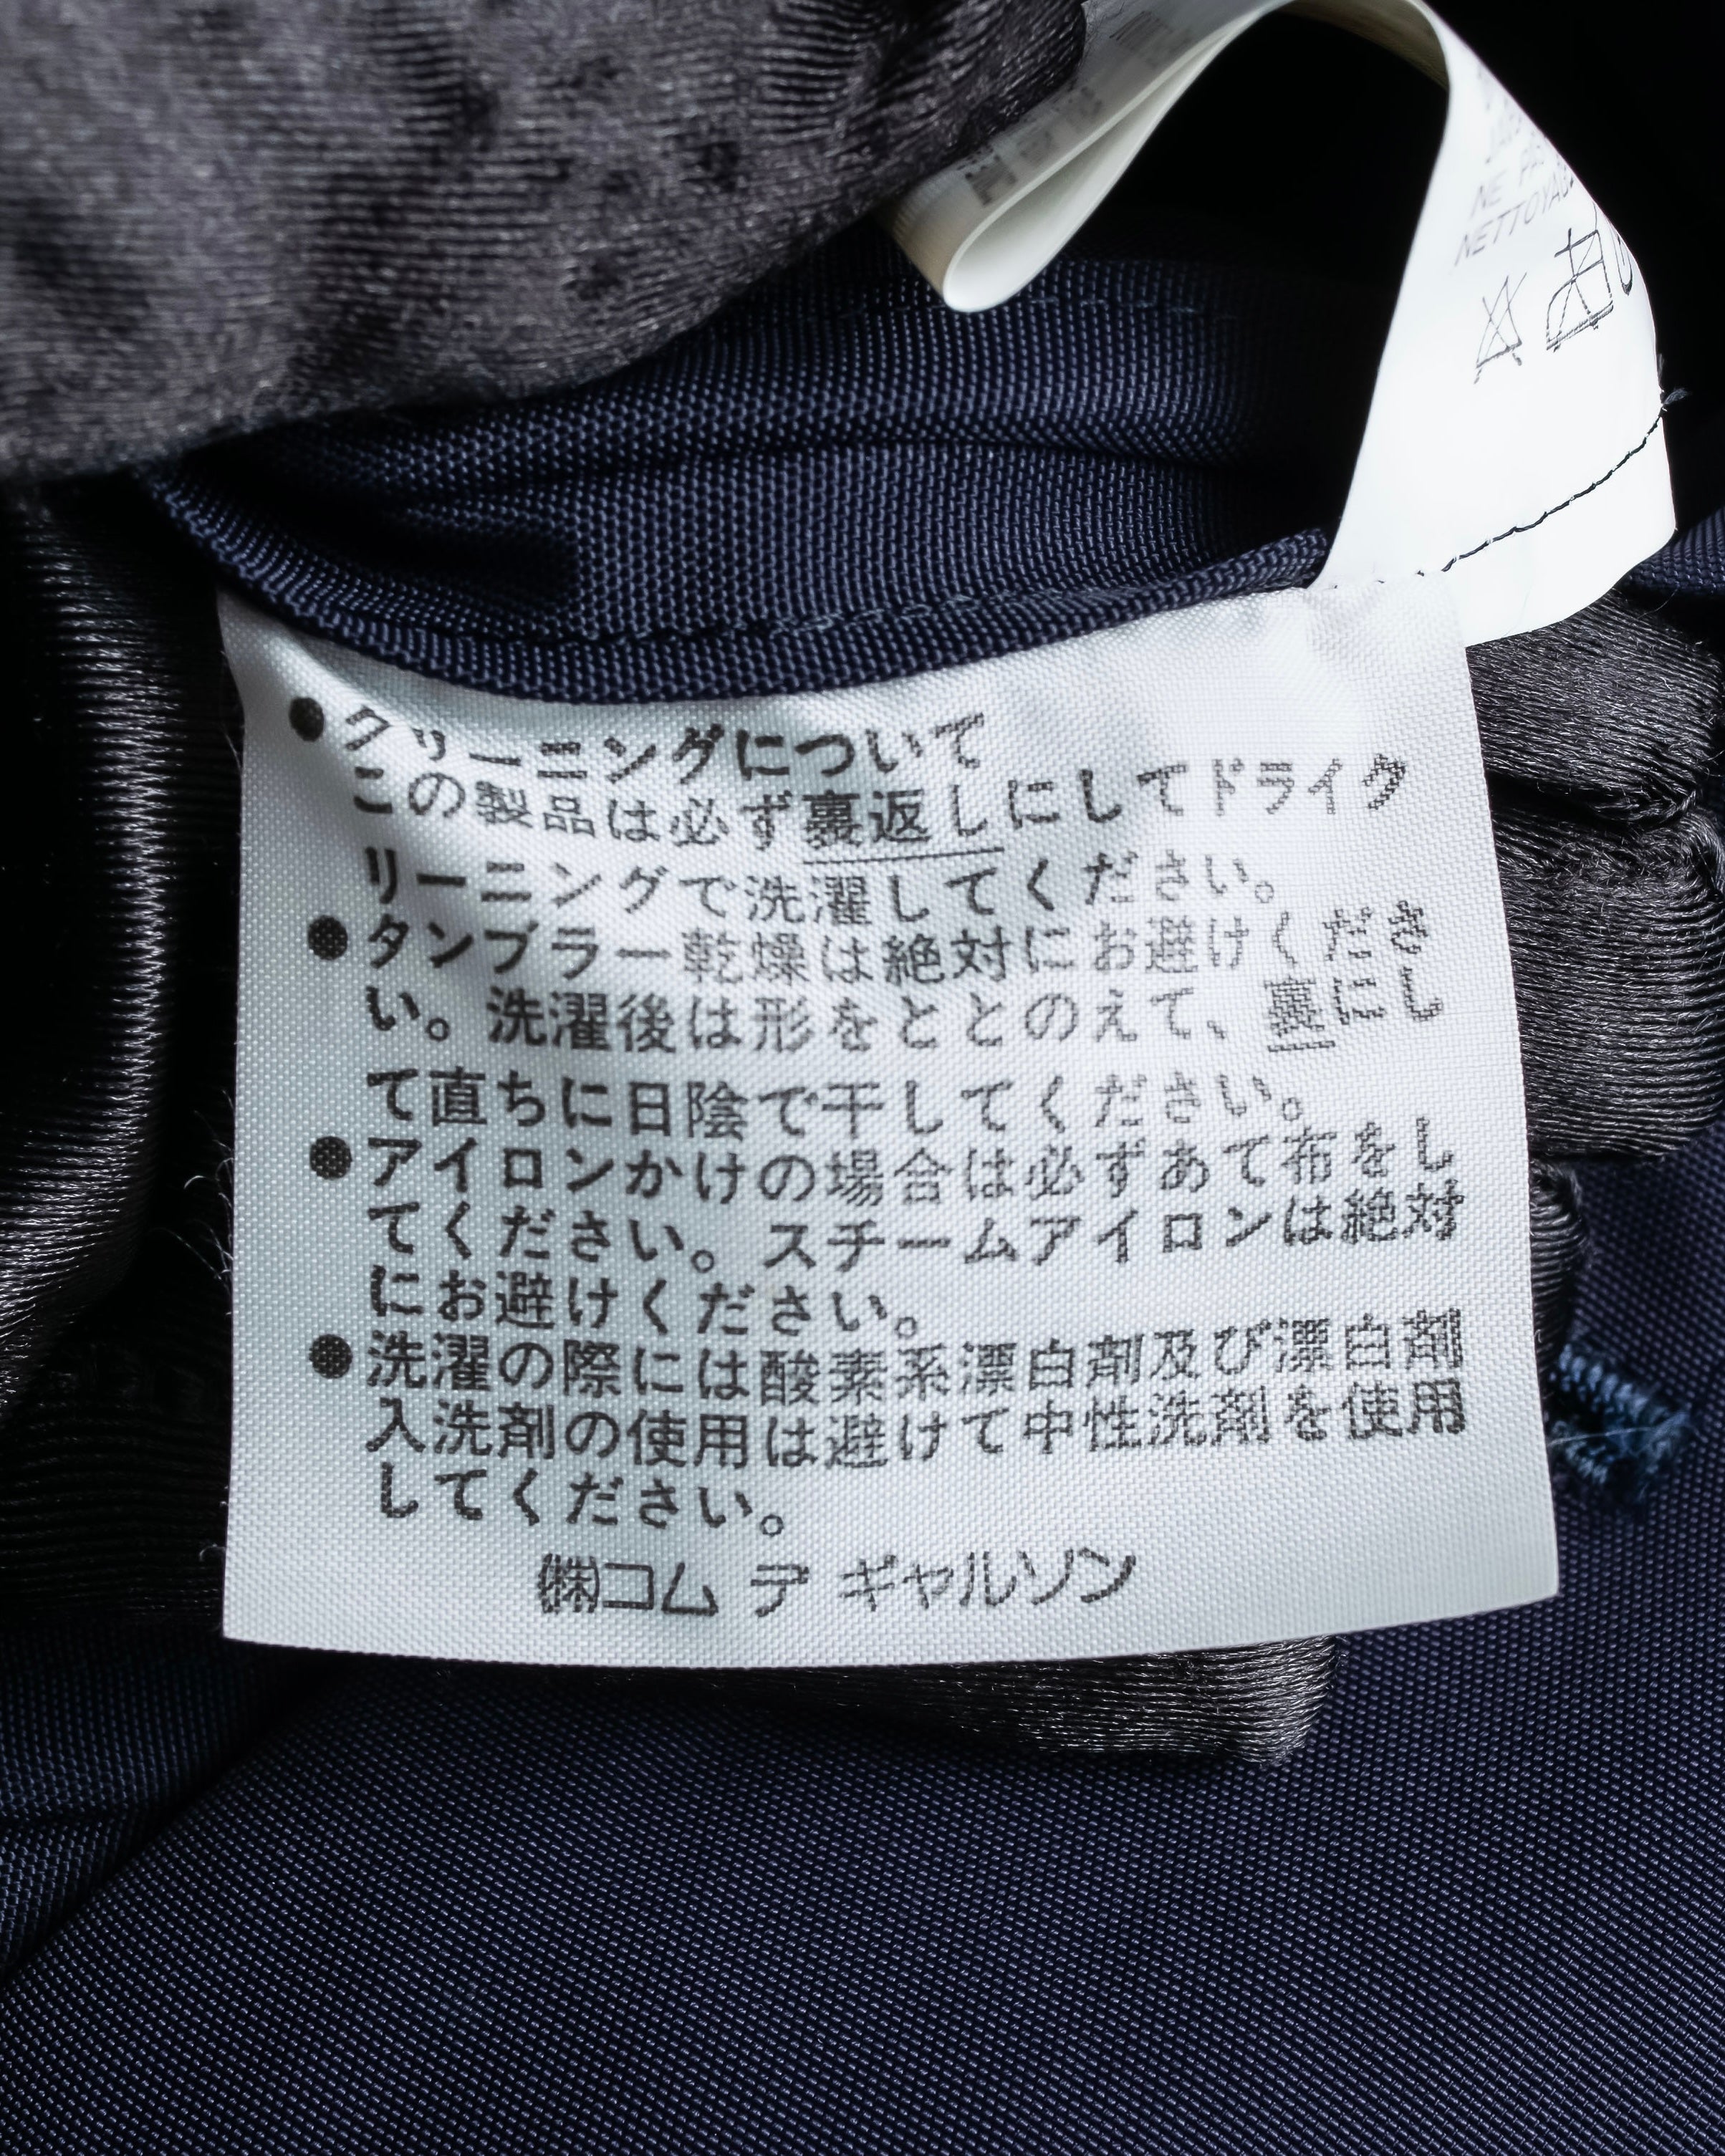 NE PAS
NETTOYAG
●クリーニングについて
この製品は必ず裏返しにしてドライク
リーニングで洗濯してください。
●タンブラー乾燥は絶対にお避けくださ
い。洗濯後は形をととのえて、裏にし
て直ちに日陰で干してください。
●アイロンかけの場合は必ずあて布をし
てください。スチームアイロンは絶対
にお避けください。
●洗濯の際には酸素系漂白剤及び漂白剤
入洗剤の使用は避けて中性洗剤を使用
してください。
㈱コム デ ギャルソン